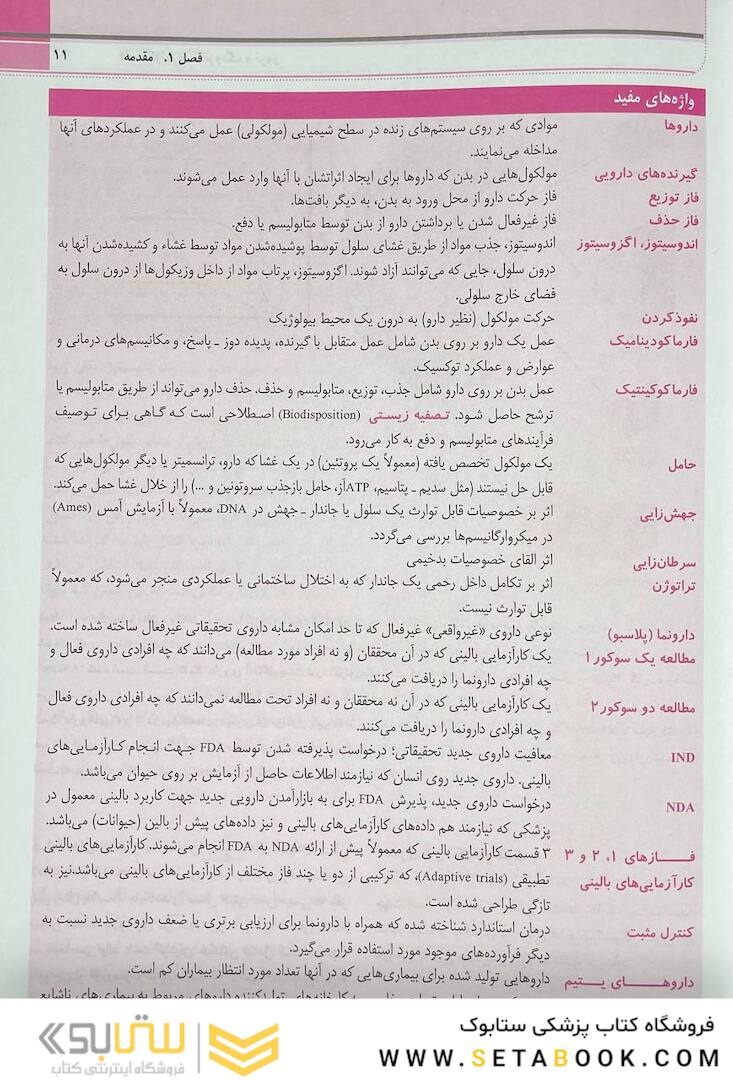 فصل ۱. مقدمه ۱۱
واژه‌های مفید
داروها موادی که بر روی سیستم‌های زنده در سطح شیمیایی (مولکولی) عمل می‌کنند و در عملکردهای آنها
مداخله می‌نمایند.
گیرنده‌های دارویی مولکول‌هایی در بدن که داروها برای ایجاد اثراتشان با آنها وارد عمل می‌شوند.
فاز توزیع فاز حرکت دارو از محل ورود به بدن، به دیگر بافت‌ها.
فاز حذف فاز غیرفعال شدن یا برداشتن دارو از بدن توسط متابولیسم یا دفع.
اندوسیتوز، اگزوسیتوز اندوسیتوز، جذب مواد از طریق غشای سلول توسط پوشیده‌شدن مواد توسط غشاء و کشیده‌شدن آنها به
درون سلول، جایی که می‌توانند آزاد شوند. اگزوسیتوز، پرتاب مواد از داخل وزیکول‌ها از درون سلول به
فضای خارج سلولی.
نفوذکردن حرکت مولکول (نظیر دارو) به درون یک محیط بیولوژیک
فارماکودینامیک عمل یک دارو بر روی بدن شامل عمل متقابل با گیرنده، پدیده دوز ـ پاسخ، و مکانیسم‌های درمانی و
عوارض و عملکرد توکسیک.
فارماکوکینتیک عمل بدن بر روی دارو شامل جذب، توزیع، متابولیسم و حذف. حذف دارو می‌تواند از طریق متابولیسم یا
ترشح حاصل شود. تصفیه زیستی (Biodisposition) اصطلاحی است که گاهی برای توصیف
فرآیندهای متابولیسم و دفع به کار می‌رود.
حامل یک مولکول تخصص یافته (معمولاً یک پروتئین) در یک غشا که دارو، ترانسمیتر یا دیگر مولکول‌هایی که
قابل حل نیستند (مثل سدیم ـ پتاسیم، ATPآز، حامل بازجذب سروتونین و ...) را از خلال غشا حمل می‌کند.
جهش‌زایی اثر بر خصوصیات قابل توارث یک سلول یا جاندار ـ جهش در DNA، معمولاً با آزمایش آمس (Ames)
در میکروارگانیسم‌ها بررسی می‌گردد.
سرطان‌زایی اثر القای خصوصیات بدخیمی
تراتوژن اثر بر تکامل داخل رحمی یک جاندار که به اختلال ساختمانی یا عملکردی منجر می‌شود، که معمولاً
قابل توارث نیست.
دارونما (پلاسبو) نوعی داروی «غیرواقعی» غیرفعال که تا حد امکان مشابه داروی تحقیقاتی غیرفعال ساخته شده است.
مطالعه یک سوکور ۱ یک کارآزمایی بالینی که در آن محققان (و نه افراد مورد مطالعه) می‌دانند که چه افرادی داروی فعال و
چه افرادی دارونما را دریافت می‌کنند.
مطالعه دو سوکور ۲ یک کارآزمایی بالینی که در آن نه محققان و نه افراد تحت مطالعه نمی‌دانند که چه افرادی داروی فعال
و چه افرادی دارونما را دریافت می‌کنند.
IND معافیت داروی جدید تحقیقاتی؛ درخواست پذیرفته شدن توسط FDA جهت انجام کارآزمایی‌های
بالینی. داروی جدید روی انسان که نیازمند اطلاعات حاصل از آزمایش بر روی حیوان می‌باشد.
NDA درخواست داروی جدید، پذیرش FDA برای به بازارآمدن دارویی جدید جهت کاربرد بالینی معمول در
پزشکی که نیازمند هم داده‌های کارآزمایی‌های بالینی و نیز داده‌های پیش از بالین (حیوانات) می‌باشد.
فـازهای ۱، ۲ و ۳ ۳ قسمت کارآزمایی بالینی که معمولاً پیش از ارائه NDA به FDA انجام می‌شوند. کارآزمایی‌های بالینی
کارآزمایی‌های بالینی تطبیقی (Adaptive trials)، که ترکیبی از دو یا چند فاز مختلف از کارآزمایی‌های بالینی می‌باشد.نیز به
تازگی طراحی شده است.
کنترل مثبت درمان استاندارد شناخته شده که همراه با دارونما برای ارزیابی برتری یا ضعف داروی جدید نسبت به
دیگر فرآورده‌های موجود مورد استفاده قرار می‌گیرد.
داروهــای یــتیم داروهایی تولید شده برای بیماری‌هایی که در آنها تعداد مورد انتظار بیماران کم است.
فروشگاه کتاب پزشکی ستابوک
WWW.SETABOOK.COM
ستابوک
فروشگاه اینترنتی کتاب